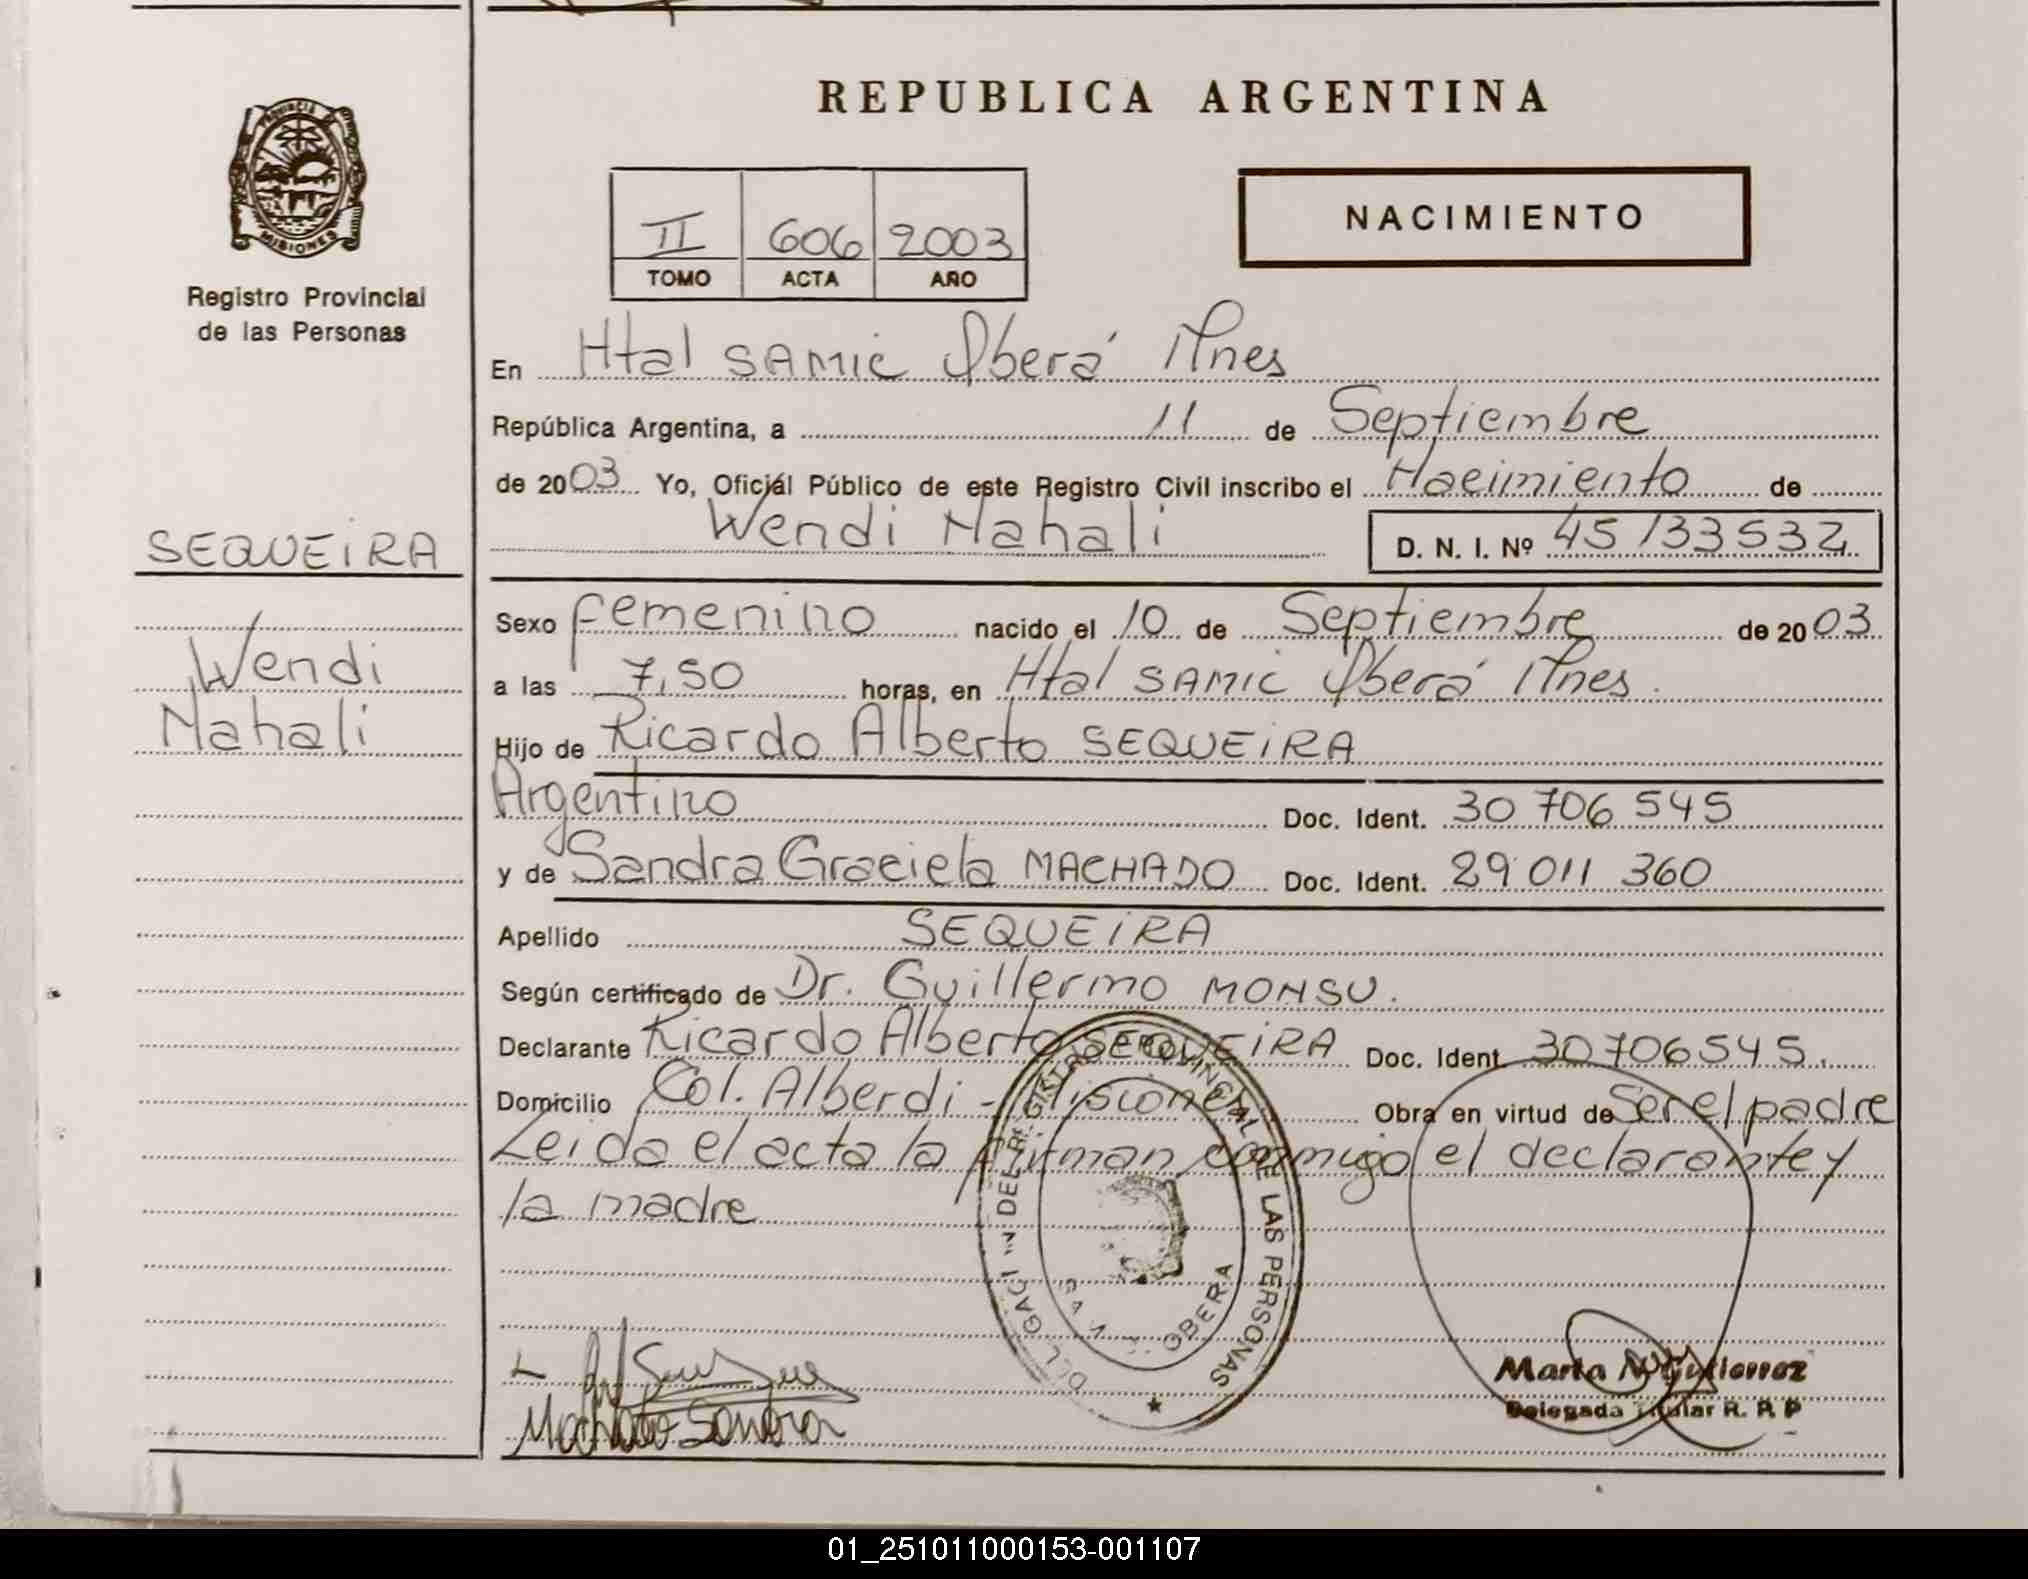 REPUBLICA ARGENTINA
PROVINCIA
MISIONES
Registro Provincial
de las Personas
II 606 2003
TOMO ACTA AÑO
NACIMIENTO
En Htal SAMIC Oberá Mnes
República Argentina, a 11 de Septiembre
de 2003 Yo, Oficial Público de este Registro Civil inscribo el Nacimiento de
Wendi Nahali D. N. I. Nº 45 133 532
SEQUEIRA
Wendi
Nahali
Sexo femenino nacido el 10 de Septiembre de 2003
a las 7,50 horas, en Htal SAMIC Oberá Mnes.
Hijo de Ricardo Alberto SEQUEIRA
Argentino Doc. Ident. 30 706 545
y de Sandra Graciela MACHADO Doc. Ident. 29 011 360
Apellido SEQUEIRA
Según certificado de Dr. Guillermo MONSU.
Declarante Ricardo Alberto SEQUEIRA Doc. Ident. 30706545.
Domicilio Col. Alberdi - Misiones Obra en virtud de Ser el padre
Leida el acta la firman conmigo el declarante y
la madre
DEL REGISTRO PROVINCIAL DE LAS PERSONAS
OBERA
Machado Sandra
Marta N. Gutierrez
Delegada Titular R. P. P
01_251011000153-001107